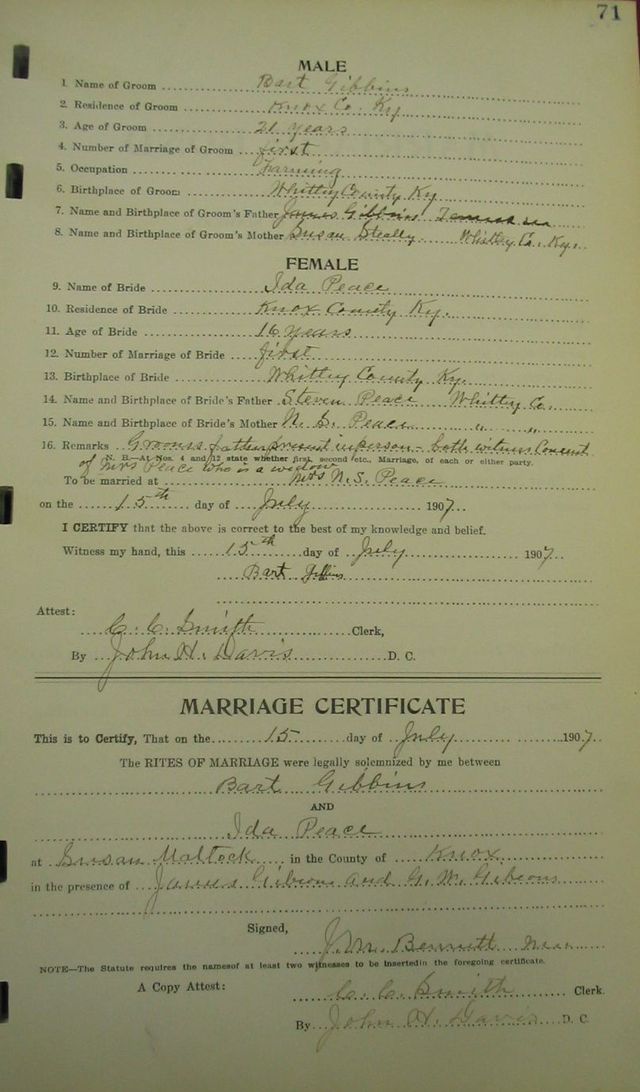 71
MALE
1. Name of Groom Bart Gibbins
2. Residence of Groom Knox Co. Ky
3. Age of Groom 21 years
4. Number of Marriage of Groom first
5. Occupation Farming
6. Birthplace of Groom Whitley County Ky
7. Name and Birthplace of Groom's Father James Gibbins
8. Name and Birthplace of Groom's Mother Susan Whitley Co. Ky.
FEMALE
9. Name of Bride Ida Peace
10. Residence of Bride Knox County Ky.
11. Age of Bride 16 years
12. Number of Marriage of Bride first
13. Birthplace of Bride Whitley County Ky.
14. Name and Birthplace of Bride's Father Steven Peace Whitley Co.
15. Name and Birthplace of Bride's Mother N. S. Peace " "
16. Remarks Grooms father present in person - both witness Consent
N. B.—At Nos. 4 and 12 state whether first, second etc., Marriage, of each or either party.
of Mrs Peace who is a widow
To be married at Mrs N. S. Peace
on the 15th day of July 1907.
I CERTIFY that the above is correct to the best of my knowledge and belief.
Witness my hand, this 15th day of July 1907
Bart Gibbins
Attest:
C. C. Smith Clerk,
By John H. Davis D. C.
MARRIAGE CERTIFICATE
This is to Certify, That on the 15 day of July 1907
The RITES OF MARRIAGE were legally solemnized by me between
Bart Gibbins
AND
Ida Peace
at Susan in the County of Knox
in the presence of James Gibson and G. M. Gibson
Signed,
J. M. Bennett
NOTE—The Statute requires the names of at least two witnesses to be inserted in the foregoing certificate.
A Copy Attest: C. C. Smith Clerk.
By John H. Davis D. C.